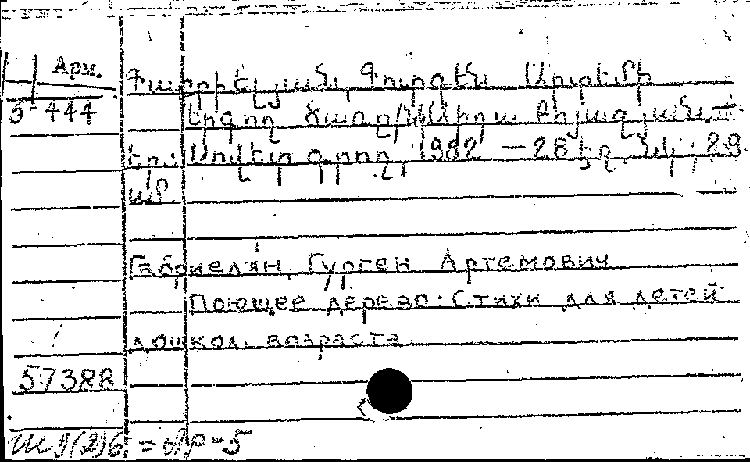 Арм.
Գաբրիելյան, Գուրգեն Արտեմի
5-444
Երգող ծառ/Նկ.
Եր.: Սովետ. գրող, 1982 — 28 էջ, նկ.; 29
սմ
Габриелян, Гурген Артемович
Поющее дерево: Стихи для детей
дошкол. возраста
57388